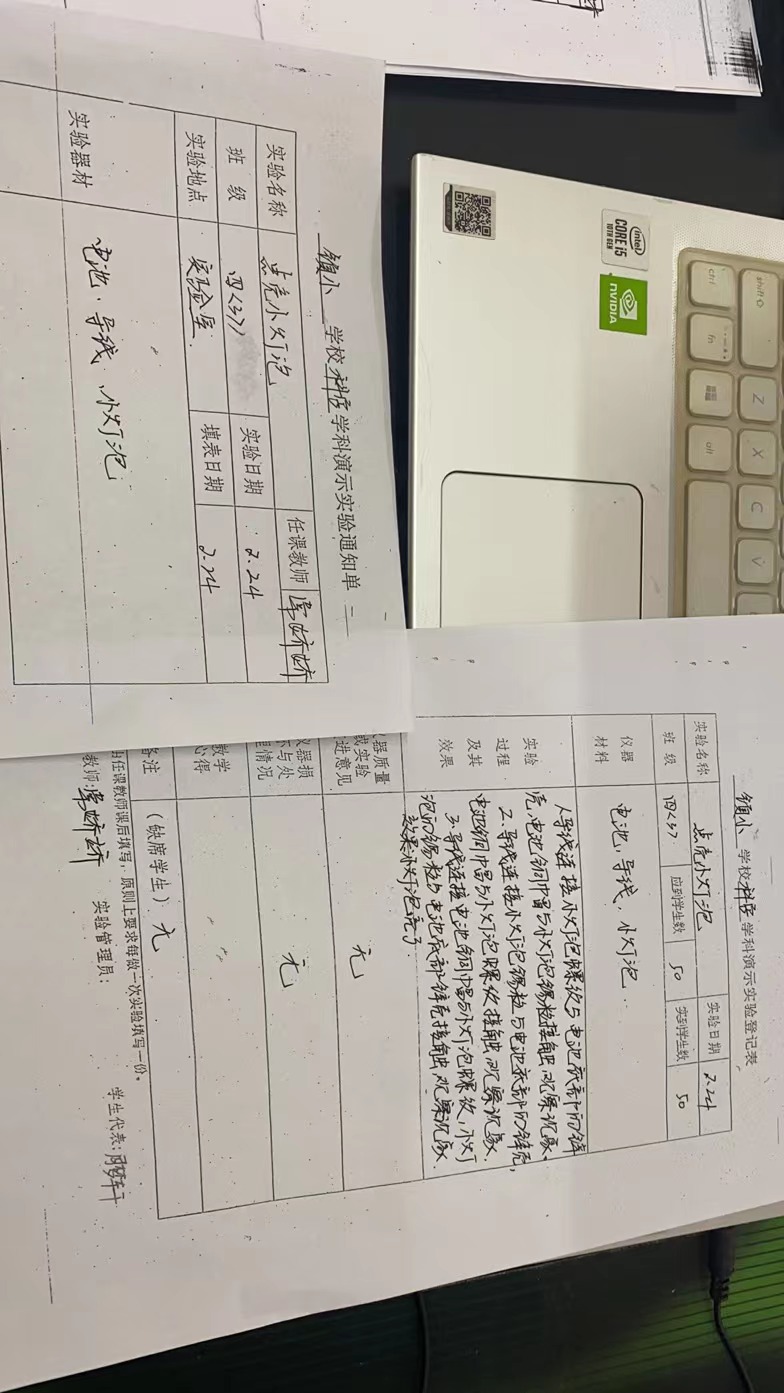 镇小 学校科学学科演示实验通知单 二
实验名称 点亮小灯泡 任课教师
班 级 四(3) 实验日期 2.24
实验地点 实验室 填表日期 2.24
实验器材 电池、导线、小灯泡
intel
CORE i5
10TH GEN
NVIDIA
shift
ctrl
fn
alt
Z
X
C
V
镇小 学校科学学科演示实验登记表
实验名称 点亮小灯泡 实验日期 2.24
班 级 四(3) 应到学生数 50 实到学生数 50
仪器材料 电池、导线、小灯泡
实验过程及其效果
1.导线连接小灯泡螺纹与电池底部的锌
壳,电池铜帽与小灯泡锡粒接触,观察现象.
2.导线连接小灯泡锡粒与电池底部的锌壳,
电池铜帽与小灯泡螺纹接触,观察现象.
3.导线连接电池铜帽与小灯泡螺纹,小灯
泡的锡粒与电池底部锌壳接触,观察现象.
效果:小灯泡亮了.
器质量
实验
进意见 无
器损
与处
情况 无
教学
心得
备注 (缺席学生)无
由任课教师课后填写,原则上要求每做一次实验填写一份。
教师: 实验管理员: 学生代表: